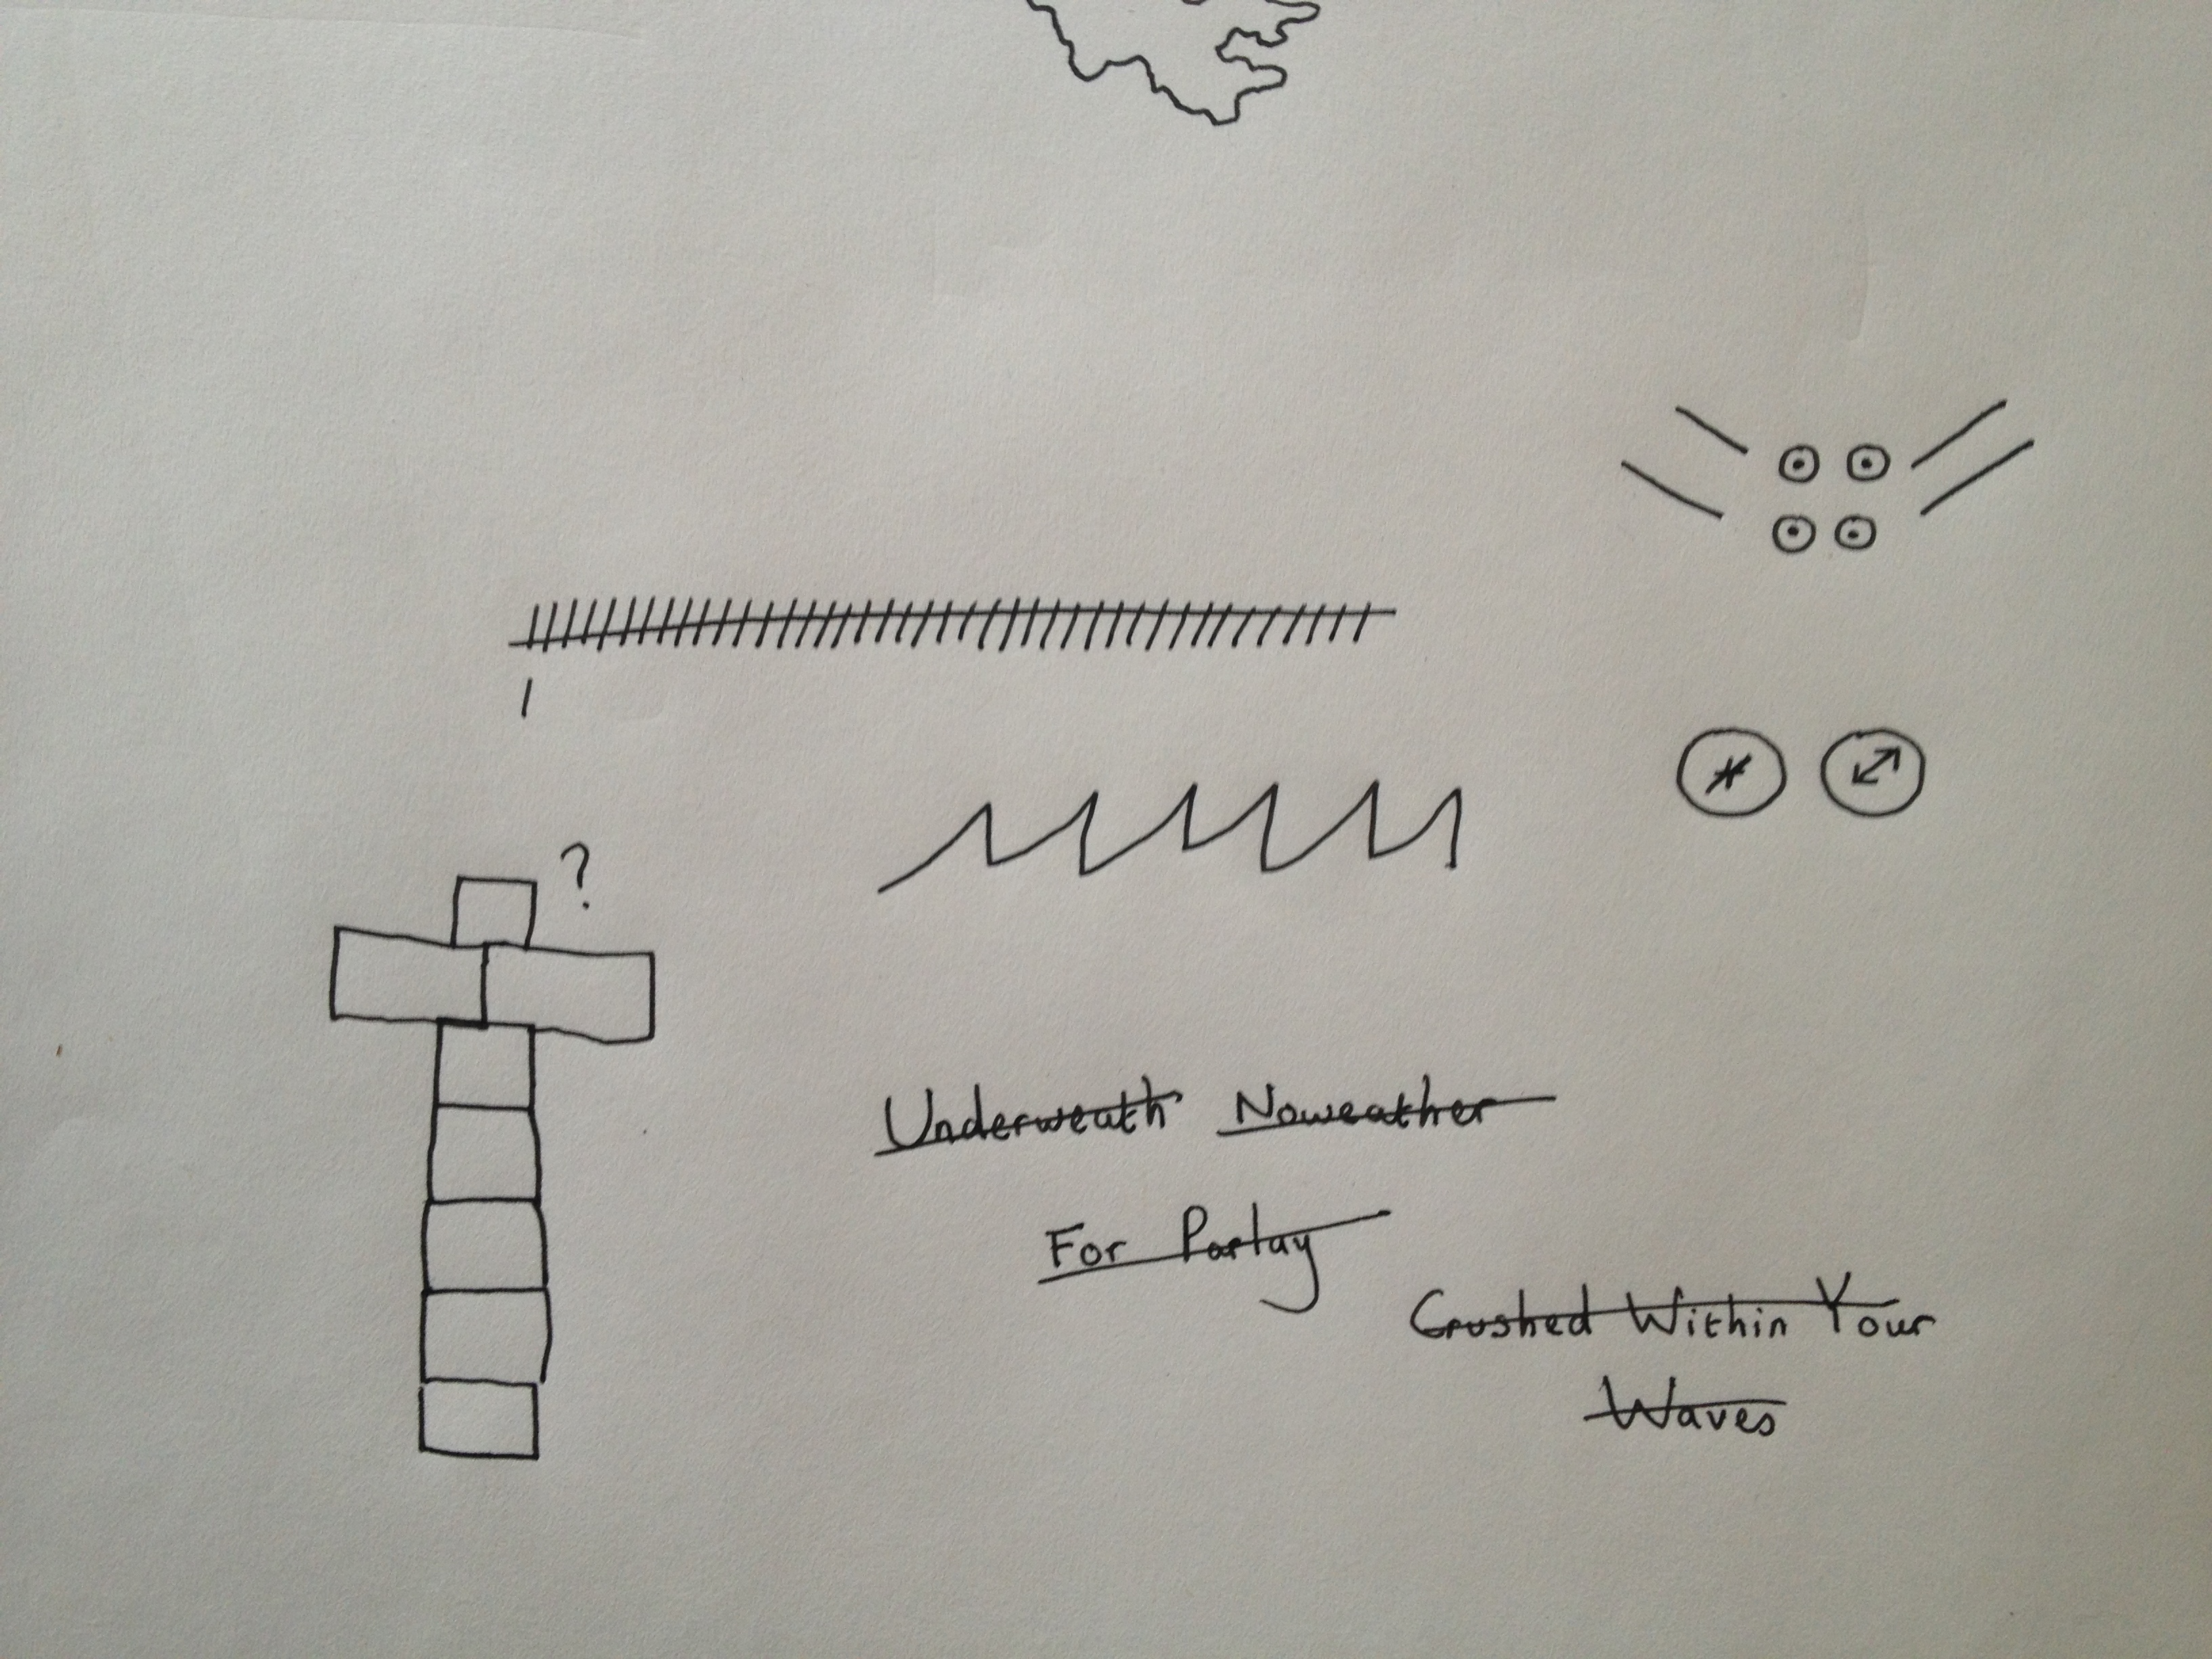 1
?
Underweath Noweather
For Parlay
Crushed Within Your
Waves